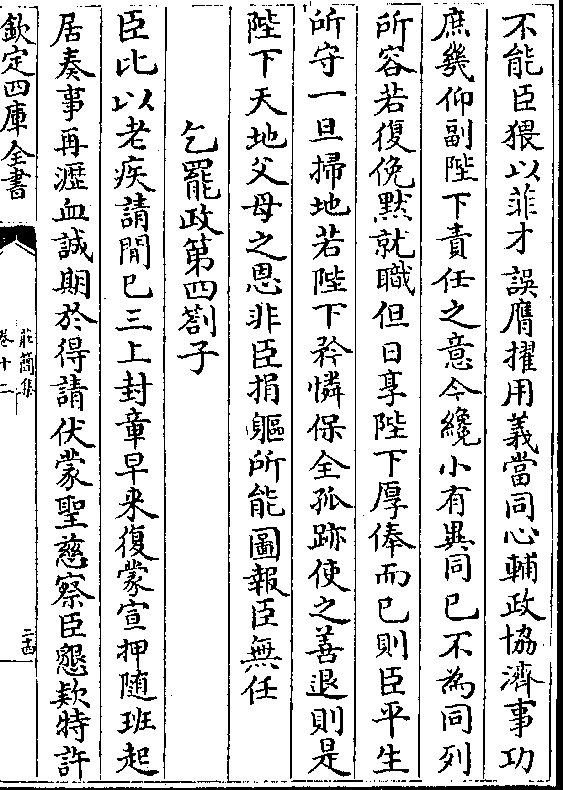 不能臣猥以菲才誤膺擢用義當同心輔政協濟事功
庶幾仰副陛下責任之意今纔小有異同已不為同列
所容若復俛默就職但日享陛下厚俸而已則臣平生
所守一旦掃地若陛下矜憐保全孤跡使之善退則是
陛下天地父母之恩非臣捐軀所能圖報臣無任
乞罷政第四劄子
臣比以老疾請閒已三上封章早来復蒙宣押随班起
居奏事再瀝血誠期於得請伏蒙聖慈察臣懇欵特許
欽定四庫全書
莊簡集
卷十二
二十四